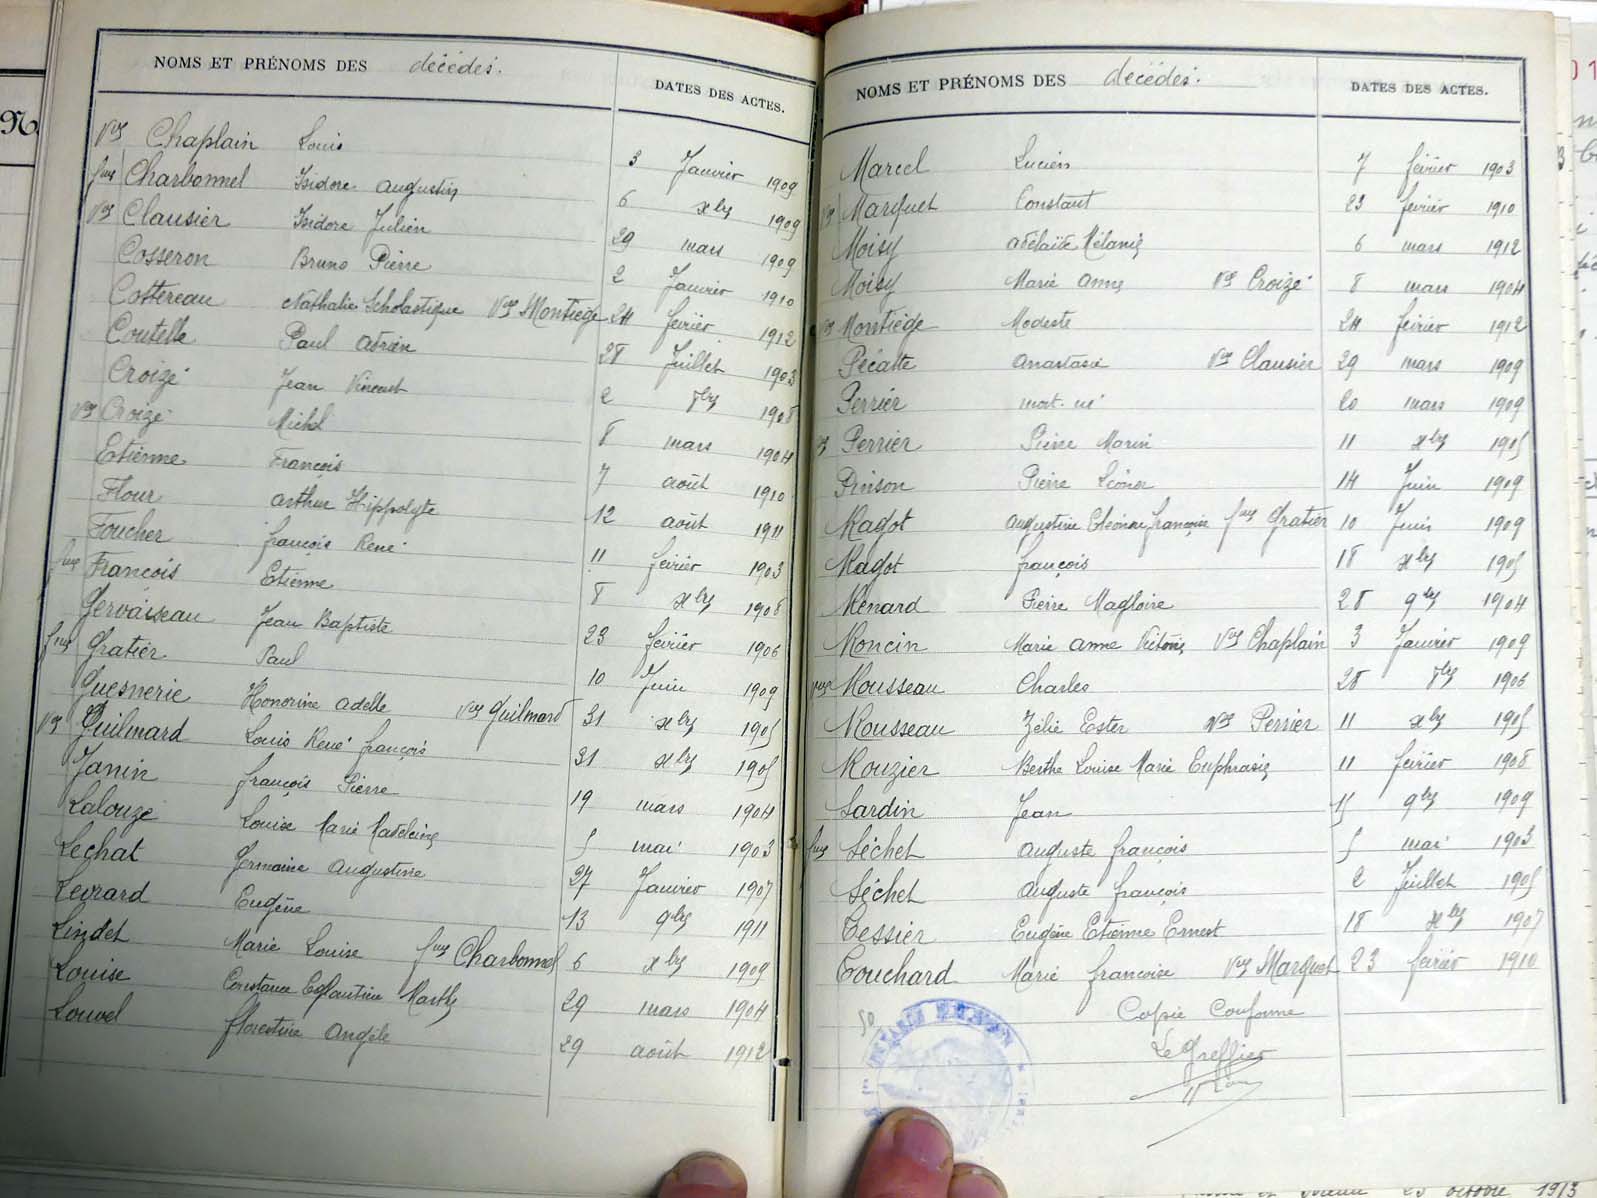 NOMS ET PRÉNOMS DES décédés. DATES DES ACTES.
Vve Chaplain Louis 3 Janvier 1909
fme Charbonnel Isidore Augustin 6 xbre 1909
Vve Clausier Isidore Julien 29 mars 1909
Cosseron Bruno Pierre 2 Janvier 1910
Cottereau Nathalie Scholastique Vve Montiège 24 février 1912
Coutelle Paul Adrien 28 Juillet 1903
Croizé Jean Vincent 2 7bre 1908
Vve Croizé Michel 8 mars 1904
Etienne François 7 août 1910
Flour Arthur Hippolyte 12 août 1911
Foucher françois René 11 février 1903
fme François Etienne 8 xbre 1908
Gervaiseau Jean Baptiste 23 février 1906
fme Gratier Paul 10 Juin 1909
Guesnerie Honorine Adelle Vve Guilmard 31 xbre 1905
Vve Guilmard Louis René françois 31 xbre 1905
Janin françois Pierre 19 mars 1904
Lalouze Louise Marie Madeleine 5 mai 1903
Lechat Germaine Augustine 27 Janvier 1907
Levrard Eugène 13 9bre 1911
Lindet Marie Louise fme Charbonnel 6 xbre 1909
Louise Constance Eglantine Marthe 29 mars 1904
Louvel florentine Angèle 29 août 1912
NOMS ET PRÉNOMS DES décédés. DATES DES ACTES.
Marcel Lucien 7 février 1903
Vve Marquet Constant 23 février 1910
Moisy Adélaïde Mélanie 6 mars 1912
Moisy Marie Anne Vve Croizé 8 mars 1904
Vve Montiège Modeste 24 février 1912
Pécatte Anastasie Vve Clausier 29 mars 1909
Perrier mort-né 20 mars 1909
Vve Perrier Pierre Marin 11 xbre 1905
Pinson Pierre Léonor 14 Juin 1909
Ragot Augustine Eléonore françoise fme Gratier 10 Juin 1909
Ragot françois 18 xbre 1905
Renard Pierre Magloire 28 9bre 1904
Roncin Marie Anne Victoire Vve Chaplain 3 Janvier 1909
Vve Rousseau Charles 28 7bre 1906
Rousseau Zélie Ester Vve Perrier 11 xbre 1905
Rouzier Berthe Louise Marie Euphrasie 11 février 1908
Sardin Jean 15 9bre 1909
fme Séchet Auguste françois 5 mai 1903
Séchet Auguste françois 2 Juillet 1905
Tessier Eugène Etienne Ernest 18 xbre 1907
Touchard Marie françoise Vve Marquet 23 février 1910
50
Copie Conforme
Le Greffier
23 octobre 1913